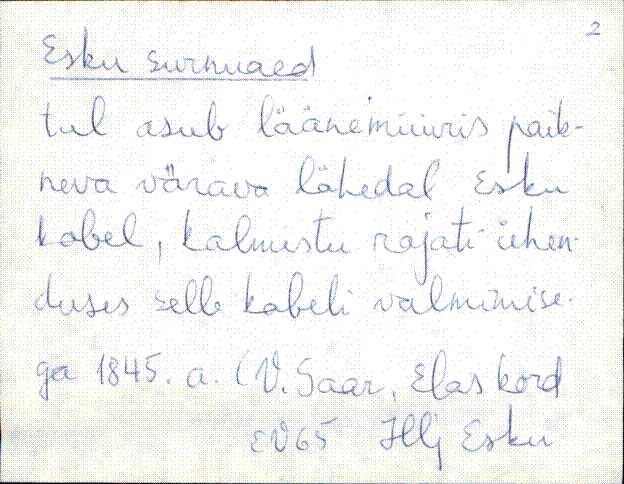 2
Esku surnuaed
tul asub läänemüüris paik-
neva värava lähedal Esku
kabel, kalmistu rajati ühen-
duses selle kabeli valmimise-
ga 1845. a. (V. Saar, Elas kord
EV65 Jllj Esku